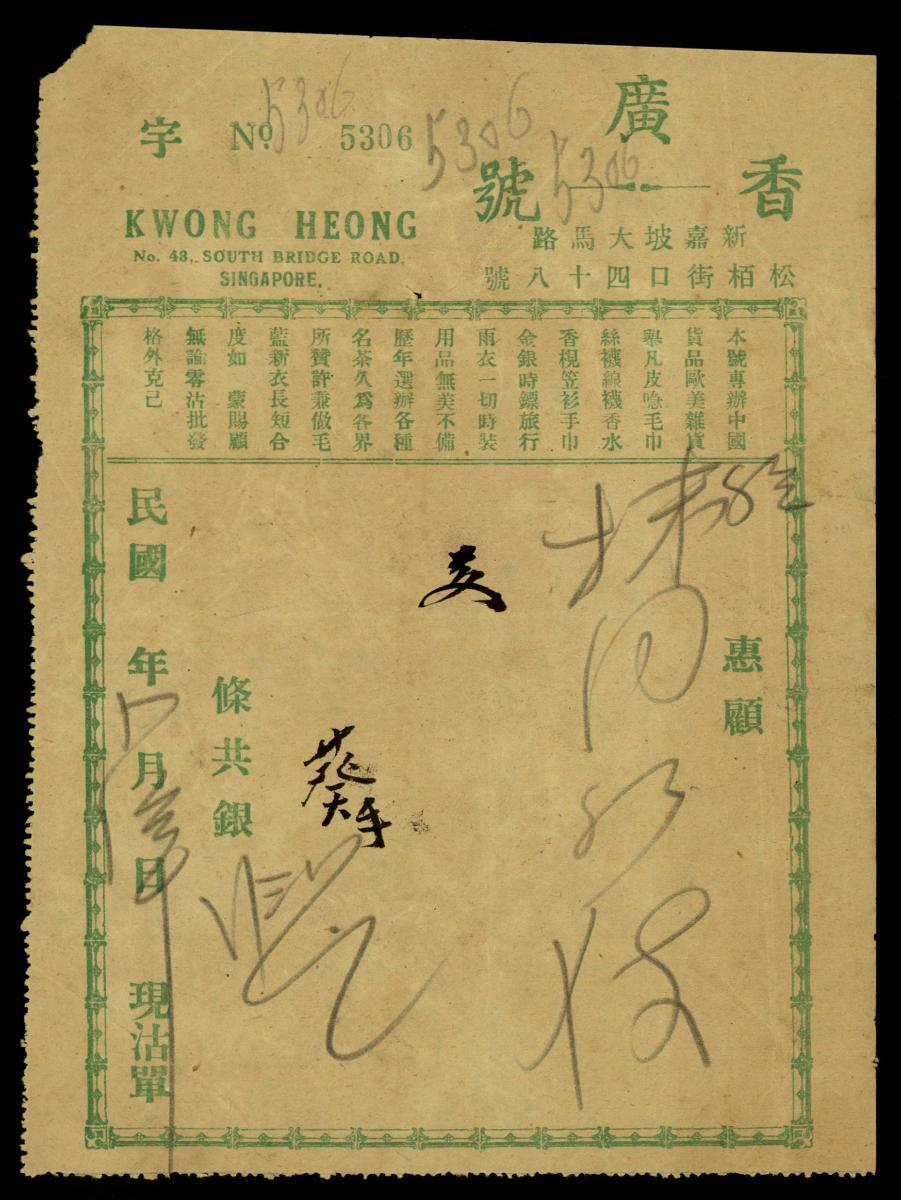 廣
香
號
字 No. 5306
5306
5306
5306
KWONG HEONG
No. 48, SOUTH BRIDGE ROAD,
SINGAPORE.
新嘉坡大馬路
松栢街口四十八號
本號專辦中國
貨品歐美雜貨
舉凡皮喼毛巾
絲襪線襪香水
香梘笠衫手巾
金銀時鏢旅行
雨衣一切時裝
用品無美不備
歷年選辦各種
名茶久爲各界
所贊許兼做毛
藍新衣長短合
度如 蒙賜顧
無論零沽批發
格外克己
惠顧
條共銀
民國 年 月 日 現沽單